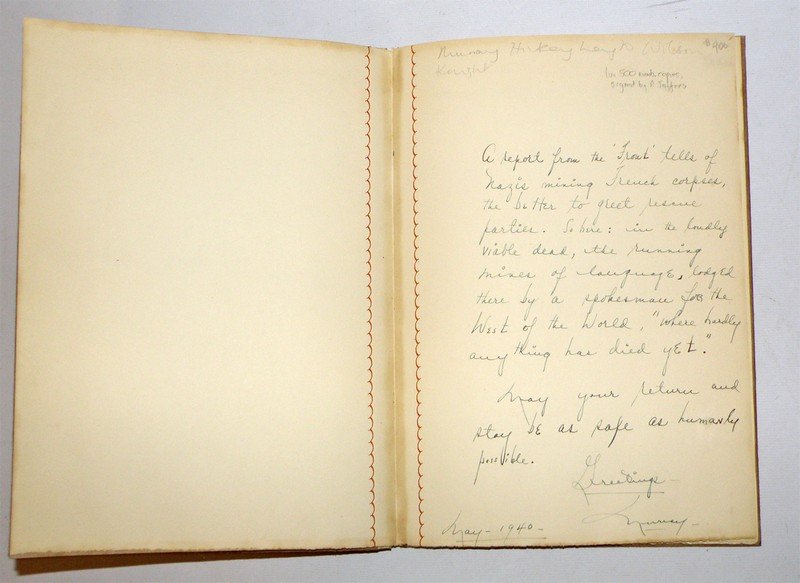 Murray Hickey Wilson $400
Knight
1 in 500 numb copies,
signed by R Jeffers
A report from the 'Front' tells of
Nazis mining French corpses,
the better to greet rescue
parties. So here: in the loudly
viable dead, the running
mines of language, lodged
there by a spokesman for the
West of the World, "where hardly
anything has died yet."
May your return and
stay be as safe as humanly
possible.
Greetings -
Murray -
May - 1940 -